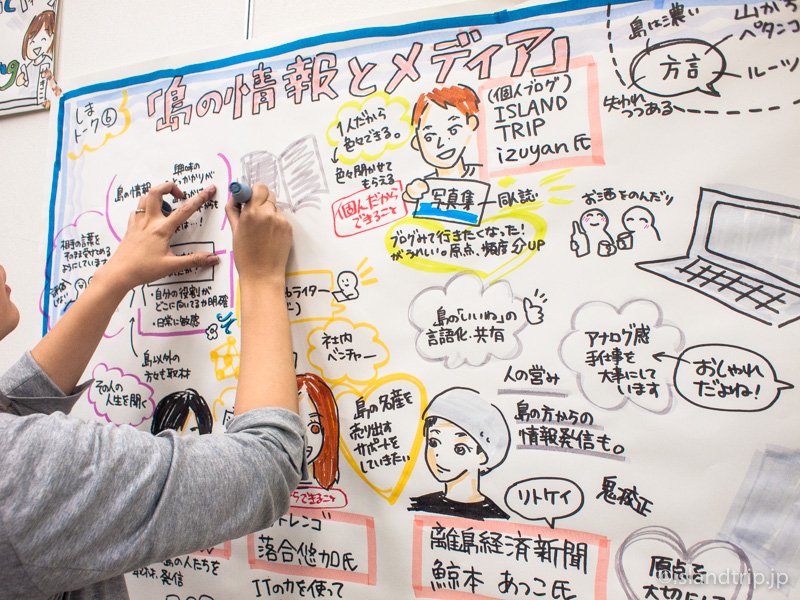 しま
トーク⑥
「島の情報とメディア」
(個人ブログ)
ISLAND
TRIP
izuyan氏
島は濃い
方言
山から
ペタンコ
ルーツ
失われ
つつある
1人だから
色々できる。
色々聞かせて
もらえる
個人だから
できること
写真集
同人誌
お酒をのんだり
ブログみて行きたくなった!
がうれしい。原点、頻度分UP
島の情報
興味の
相手の言葉を
そのまま受けとめる
ようにしています
・自分の役割が
どこに向いてるか明確
・日常に敏感
島以外の
方々も取材
その人の
人生を聞く
ライター
社内
ベンチャー
島の名産を
売り出す
サポートを
していきたい
島の「いいね」の
言語化・共有
アナログ感
手仕事を
大事にして
います
おしゃれ
だよね!
人の営み
島の方からの
情報発信も。
リトケイ
離島経済新聞
鯨本 あつこ氏
トレンゴ
落合悠加氏
ITの力を使って
島の人たちを
発信
できること
原点を
大切に
©islandtrip.jp